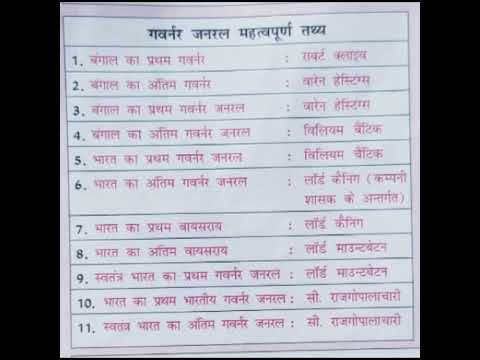 गवर्नर जनरल महत्वपूर्ण तथ्य
1. बंगाल का प्रथम गवर्नर : राबर्ट क्लाइव
2. बंगाल का अंतिम गवर्नर : वारेन हेस्टिंग्स
3. बंगाल का प्रथम गवर्नर जनरल : वारेन हेस्टिंग्स
4. बंगाल का अंतिम गवर्नर जनरल : विलियम बैंटिक
5. भारत का प्रथम गवर्नर जनरल : विलियम बैंटिक
6. भारत का अंतिम गवर्नर जनरल : लॉर्ड कैनिंग (कम्पनी
शासक के अन्तर्गत)
7. भारत का प्रथम वायसराय : लॉर्ड कैनिंग
8. भारत का अंतिम वायसराय : लॉर्ड माउन्टबेटन
9. स्वतंत्र भारत का प्रथम गवर्नर जनरल : लॉर्ड माउन्टबेटन
10. भारत का प्रथम भारतीय गवर्नर जनरल : सी. राजगोपालाचारी
11. स्वतंत्र भारत का अंतिम गवर्नर जनरल : सी. राजगोपालाचारी